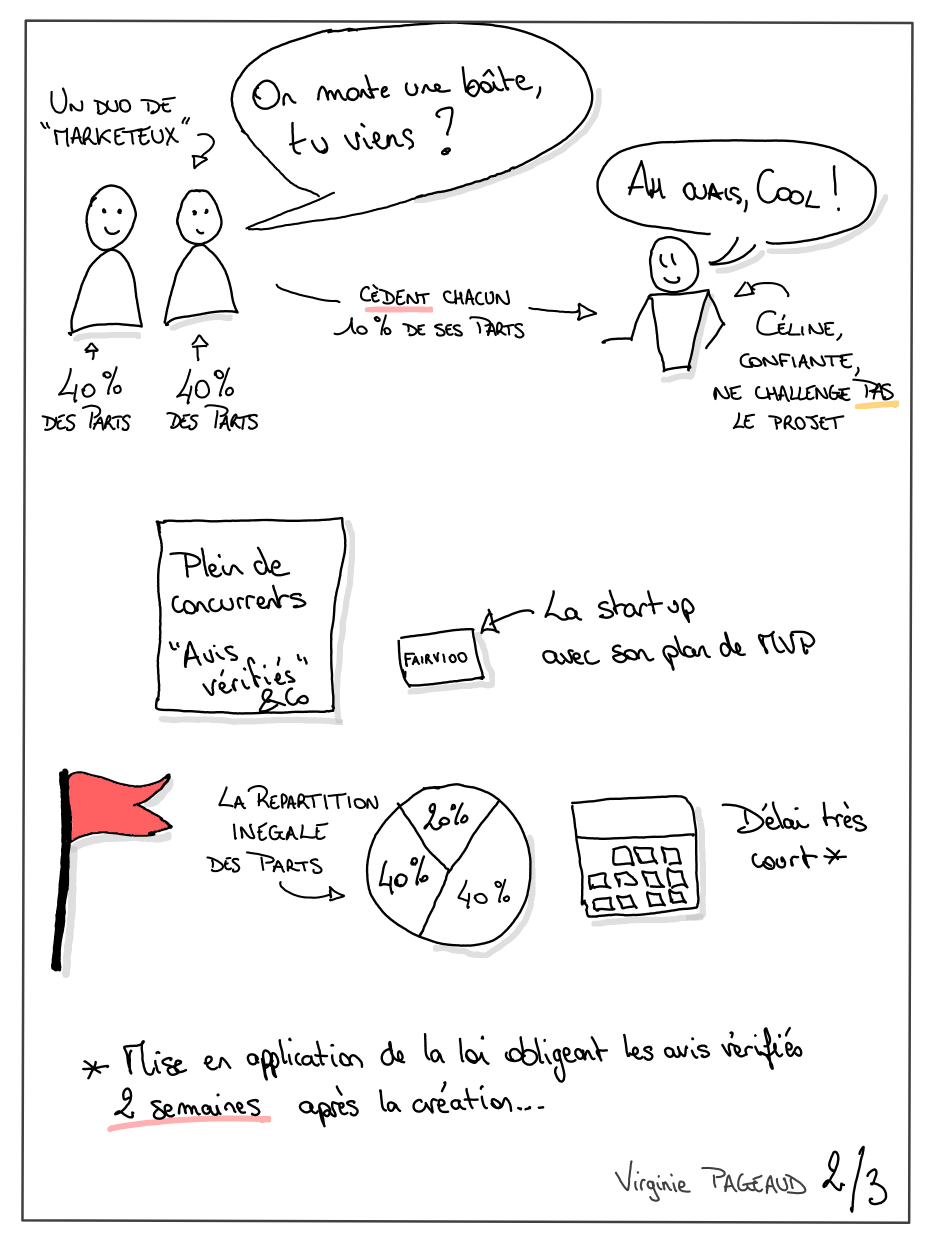 Un duo de
"Marketeux"
On monte une boîte,
tu viens ?
Ah ouais, Cool !
cèdent chacun
10% de ses parts
40%
des parts
40%
des parts
Céline,
confiante,
ne challenge pas
le projet
Plein de
concurrents
"Avis
vérifiés"
& Co
FAIRVIOO
La startup
avec son plan de MVP
La Repartition
inegale
des parts
20%
40%
40%
Délai très
court *
* Mise en application de la loi obligeant les avis vérifiés
2 semaines après la création...
Virginie PAGEAUD 2/3